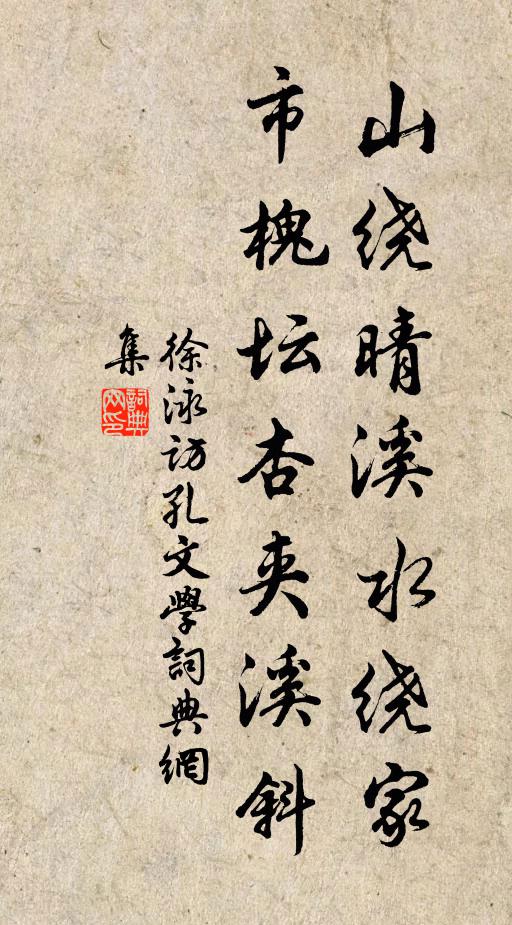 山绕晴溪水绕家
市槐坛杏夹溪斜
徐泳访孔文學詞典網
集
詞典网印